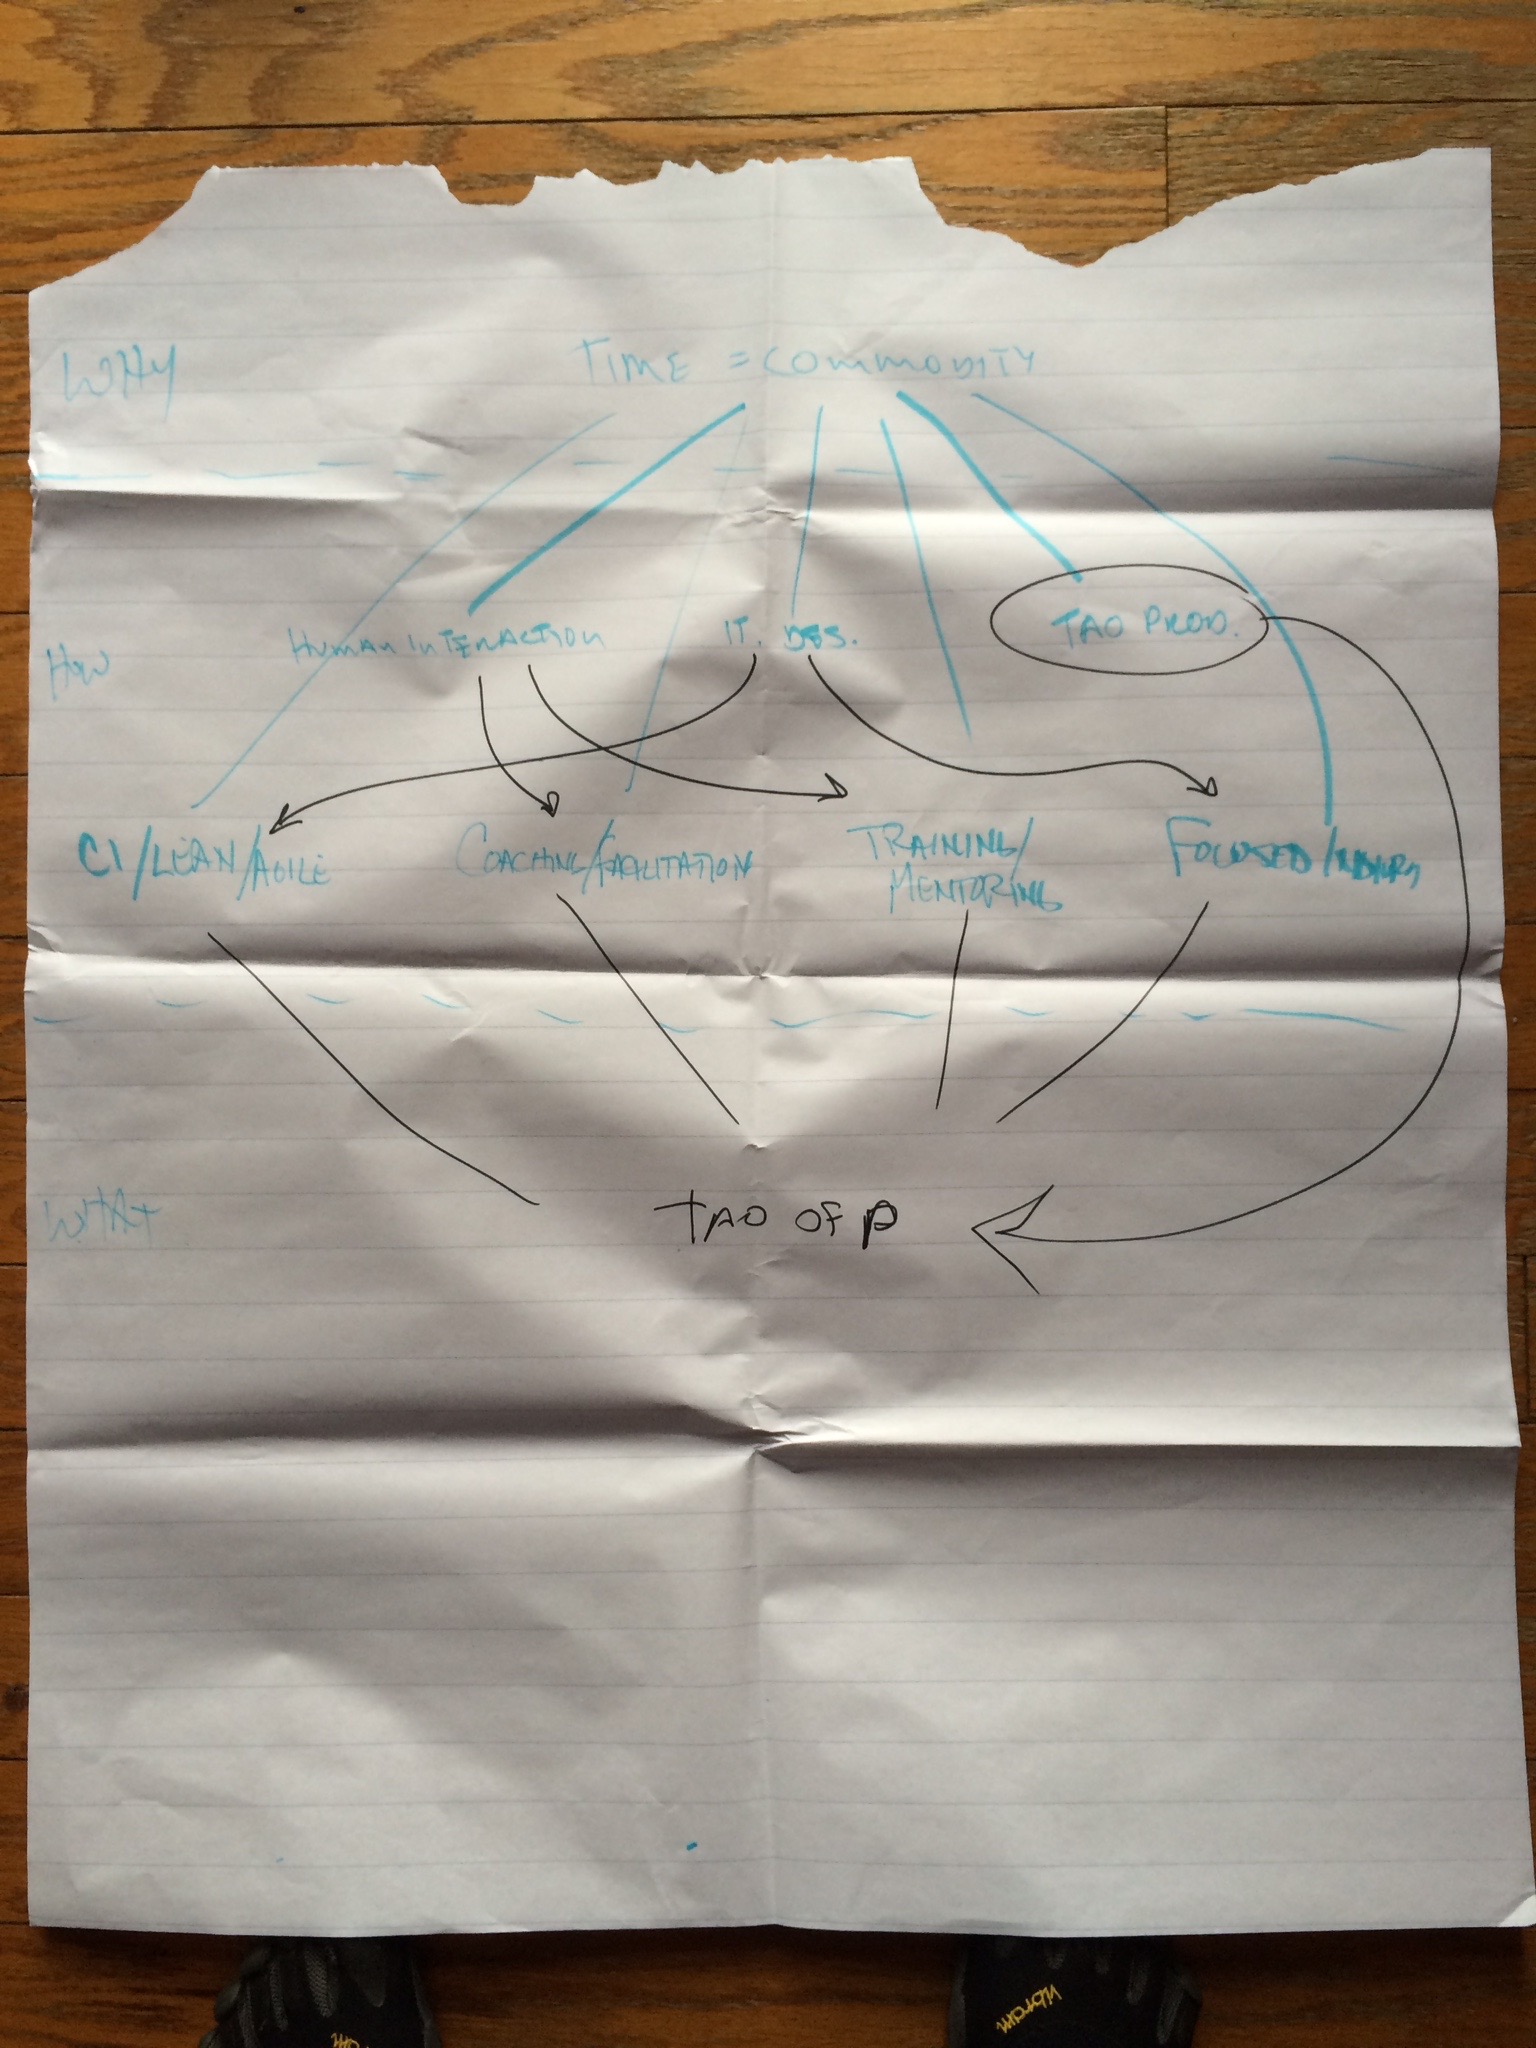 WHY
TIME = COMMODITY
HUMAN INTERACTION
IT. DES.
TAO PROD.
HOW
CI/LEAN/AGILE
COACHING/FACILITATION
TRAINING/
MENTORING
FOCUSED/
WHAT
TAO OF P
vibram